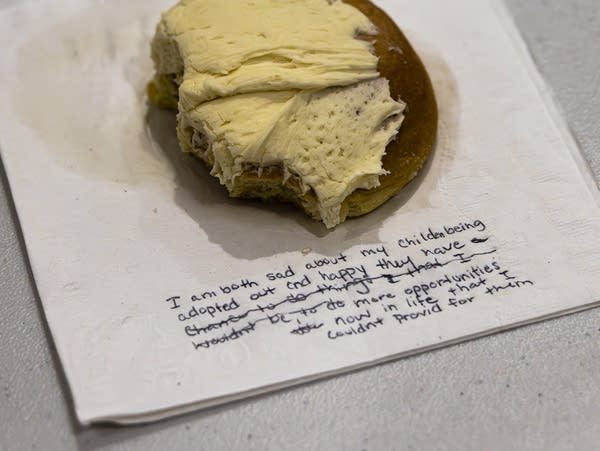 I am both sad about my Childen being
adopted out and happy they have a
Chance to do things that I
Wouldnt be, to do more opportunities
now in life that I
Couldnt Provid for them